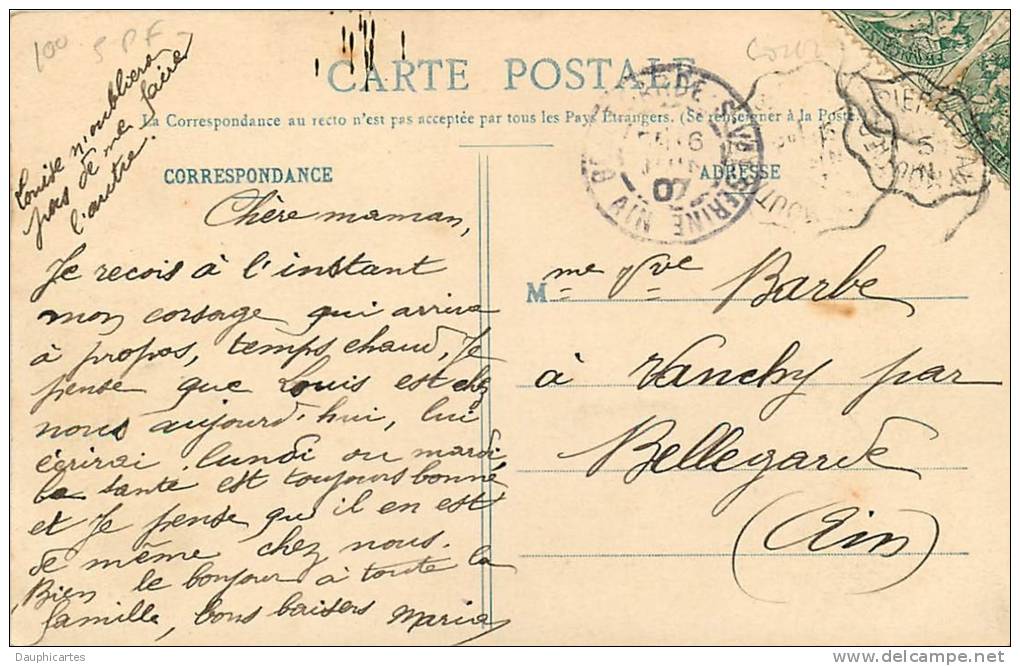 100 5 PF
CARTE POSTALE
La Correspondance au recto n'est pas acceptée par tous les Pays Étrangers. (Se renseigner à la Poste.)
CORRESPONDANCE
ADRESSE
Louise n'oubliera
pas de me faire
l'autre.
Chère maman,
Je recois à l'instant
mon corsage qui arrive
à propos, temps chaud, Je
pense que Louis est chez
nous aujourd'hui, lui
écrirai lundi ou mardi,
la santé est toujours bonne
et Je pense qu'il en est
de même chez nous.
Bien le bonjour à toute la
famille, bons baisers Maria
Mme Vve Barbe
à Vanchy par
Bellegarde
(Ain)
07
AIN
Dauphicartes
www.delcampe.net